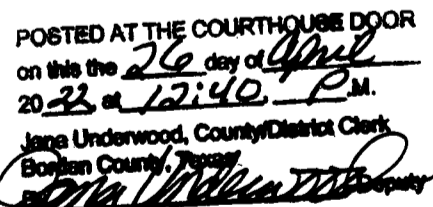 POSTED AT THE COURTHOUSE DOOR
on this the 26 day of April
20 22, at 12:40, P.M.
Jana Underwood, County/District Clerk
Borden County, Texas
Jana Underwood Deputy